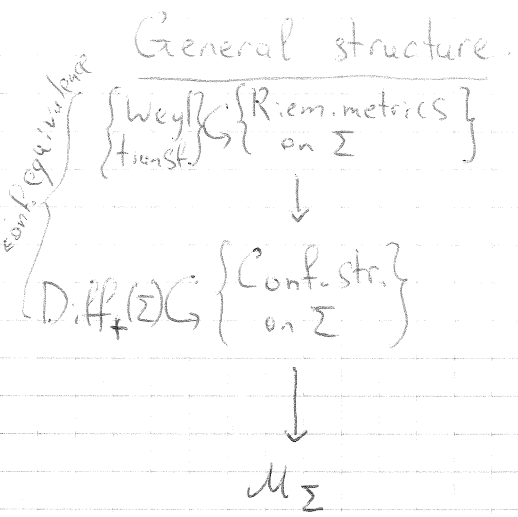 General structure.
conf. equivalence
{Weyl transf.} ↻ {Riem. metrics on Σ}
↓
Diff₊(Σ) ↻ {Conf. str. on Σ}
↓
M_Σ